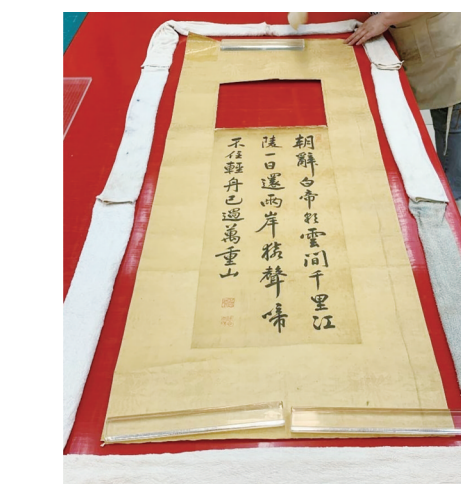 朝辭白帝彩雲間千里江
陵一日還兩岸猿聲啼
不住輕舟已過萬重山